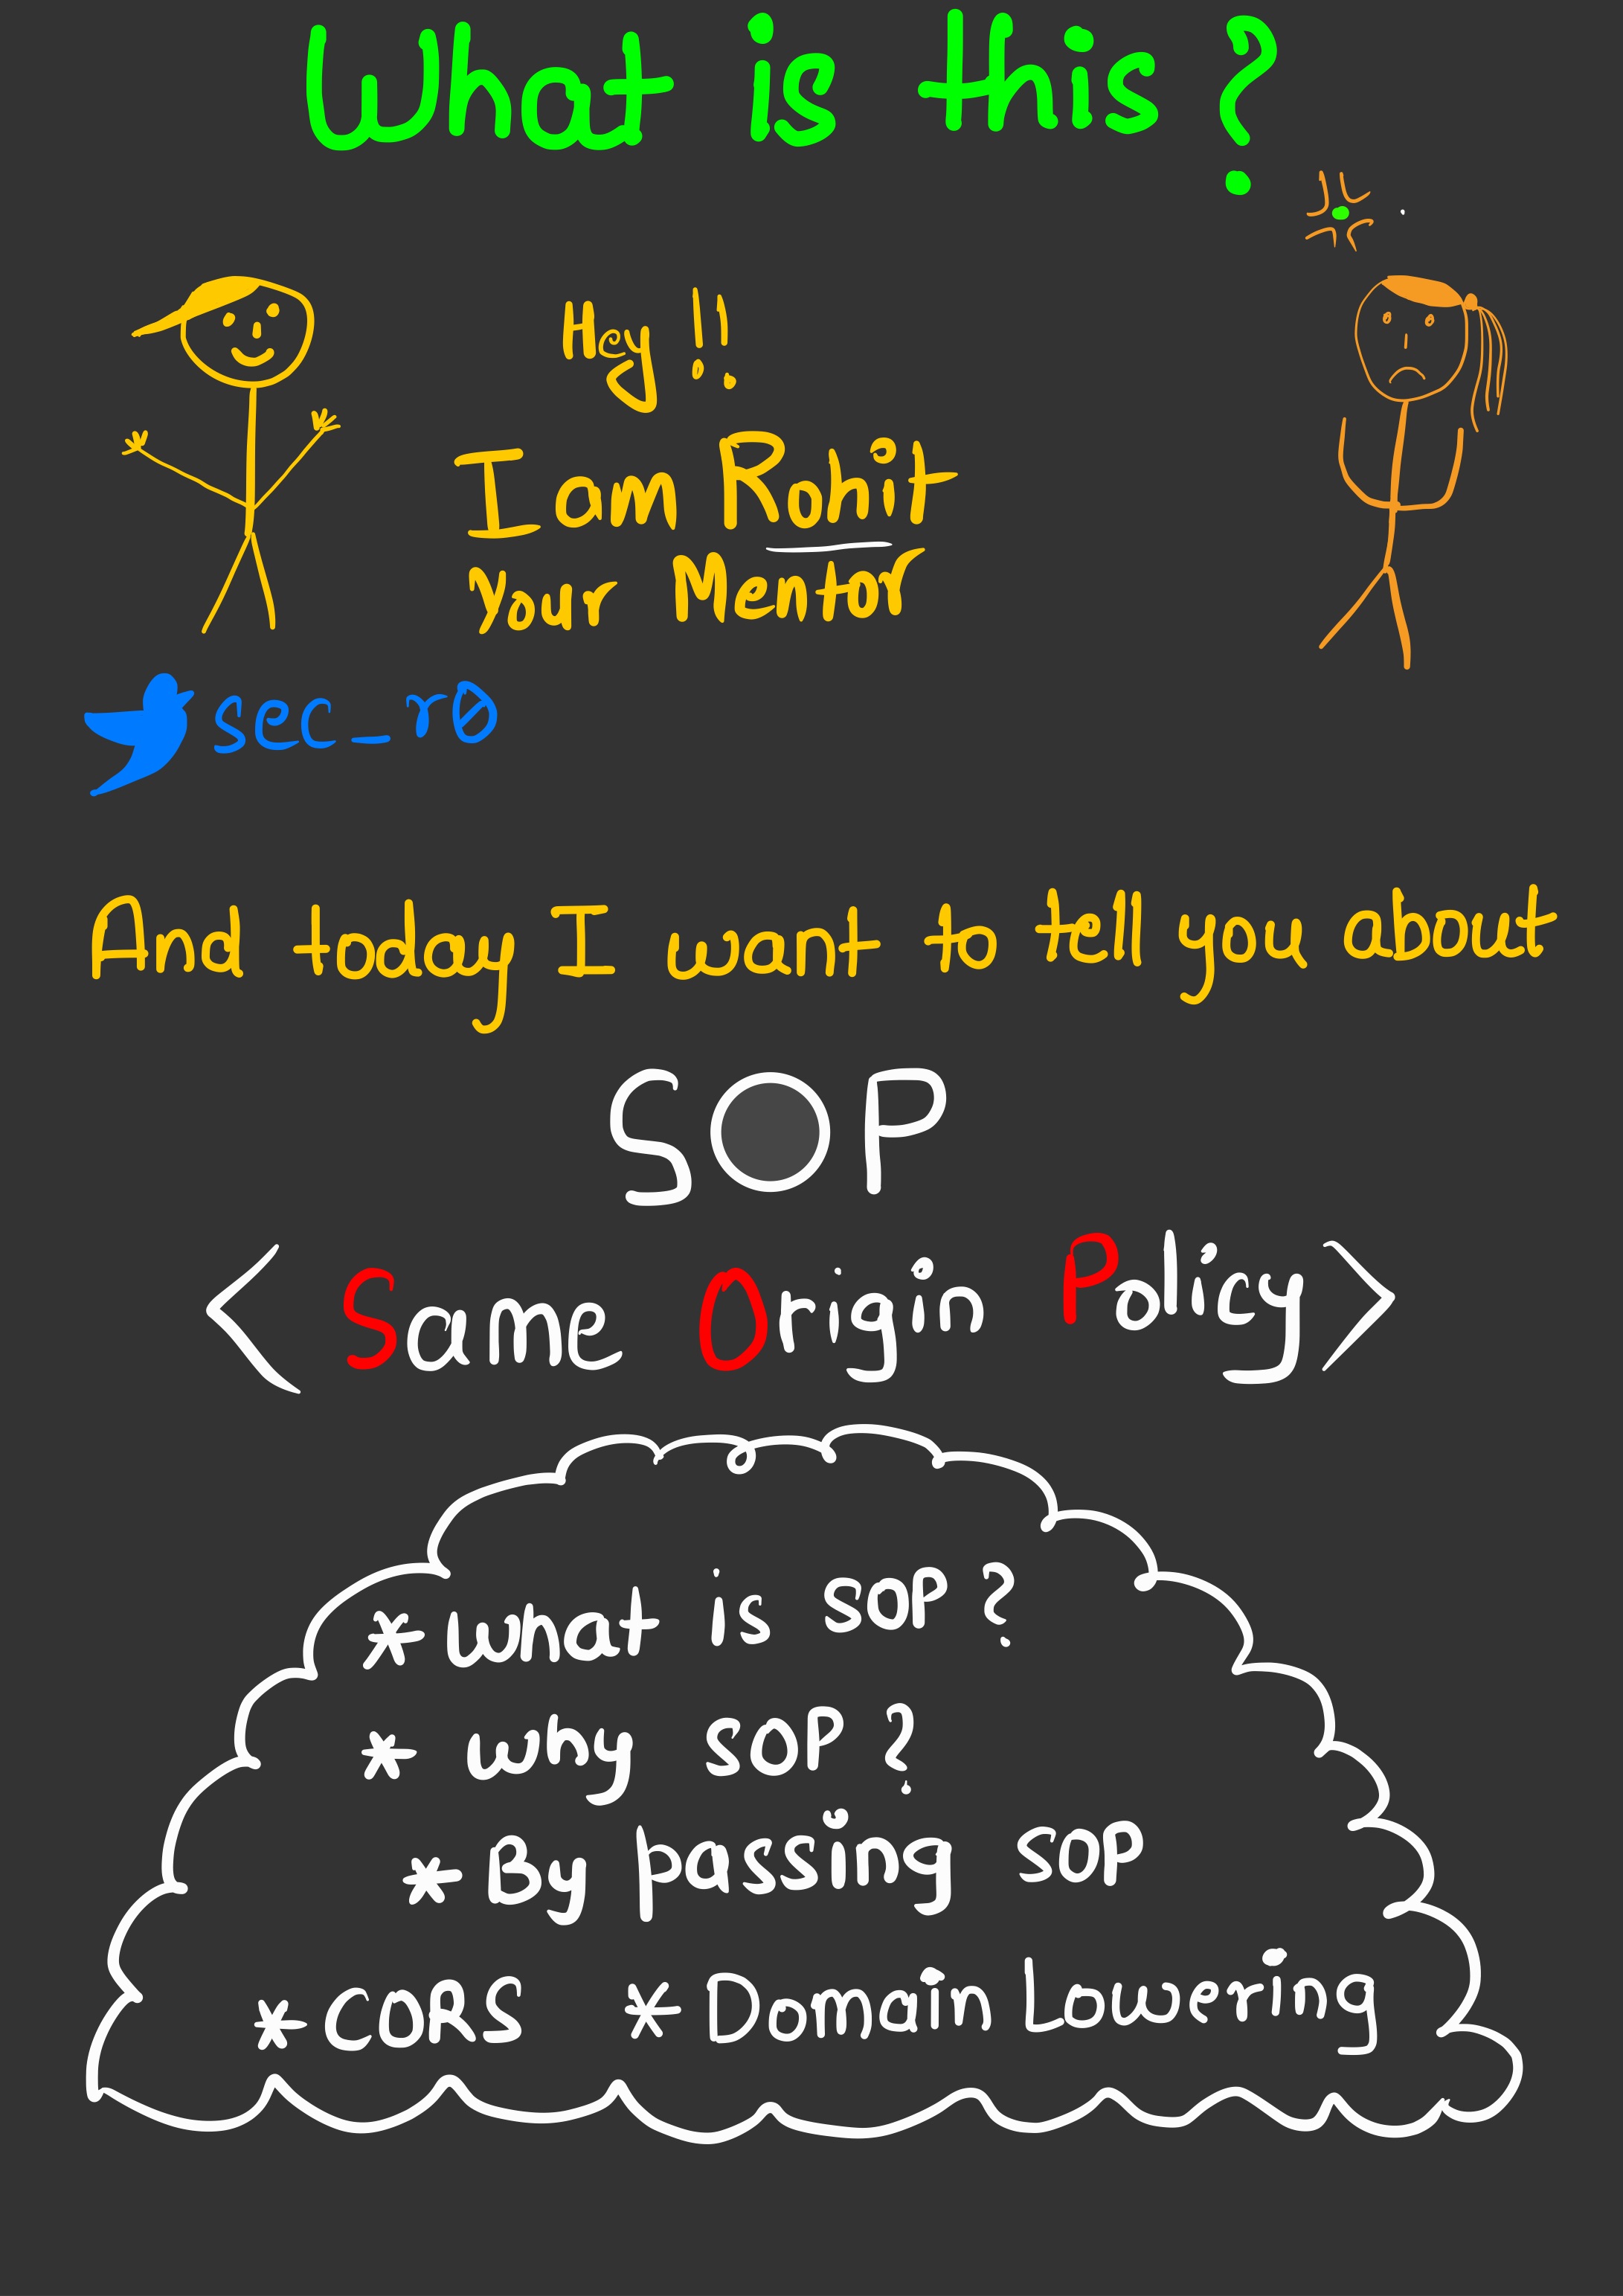 What is this ?
Hey !!
I am Ronit
Your Mentor
sec_r0
And today I want to tell you about
SOP
<Same Origin Policy>
* what is SOP ?
* why SOP ?
* By passing SOP
* CORS * Domain Lowering